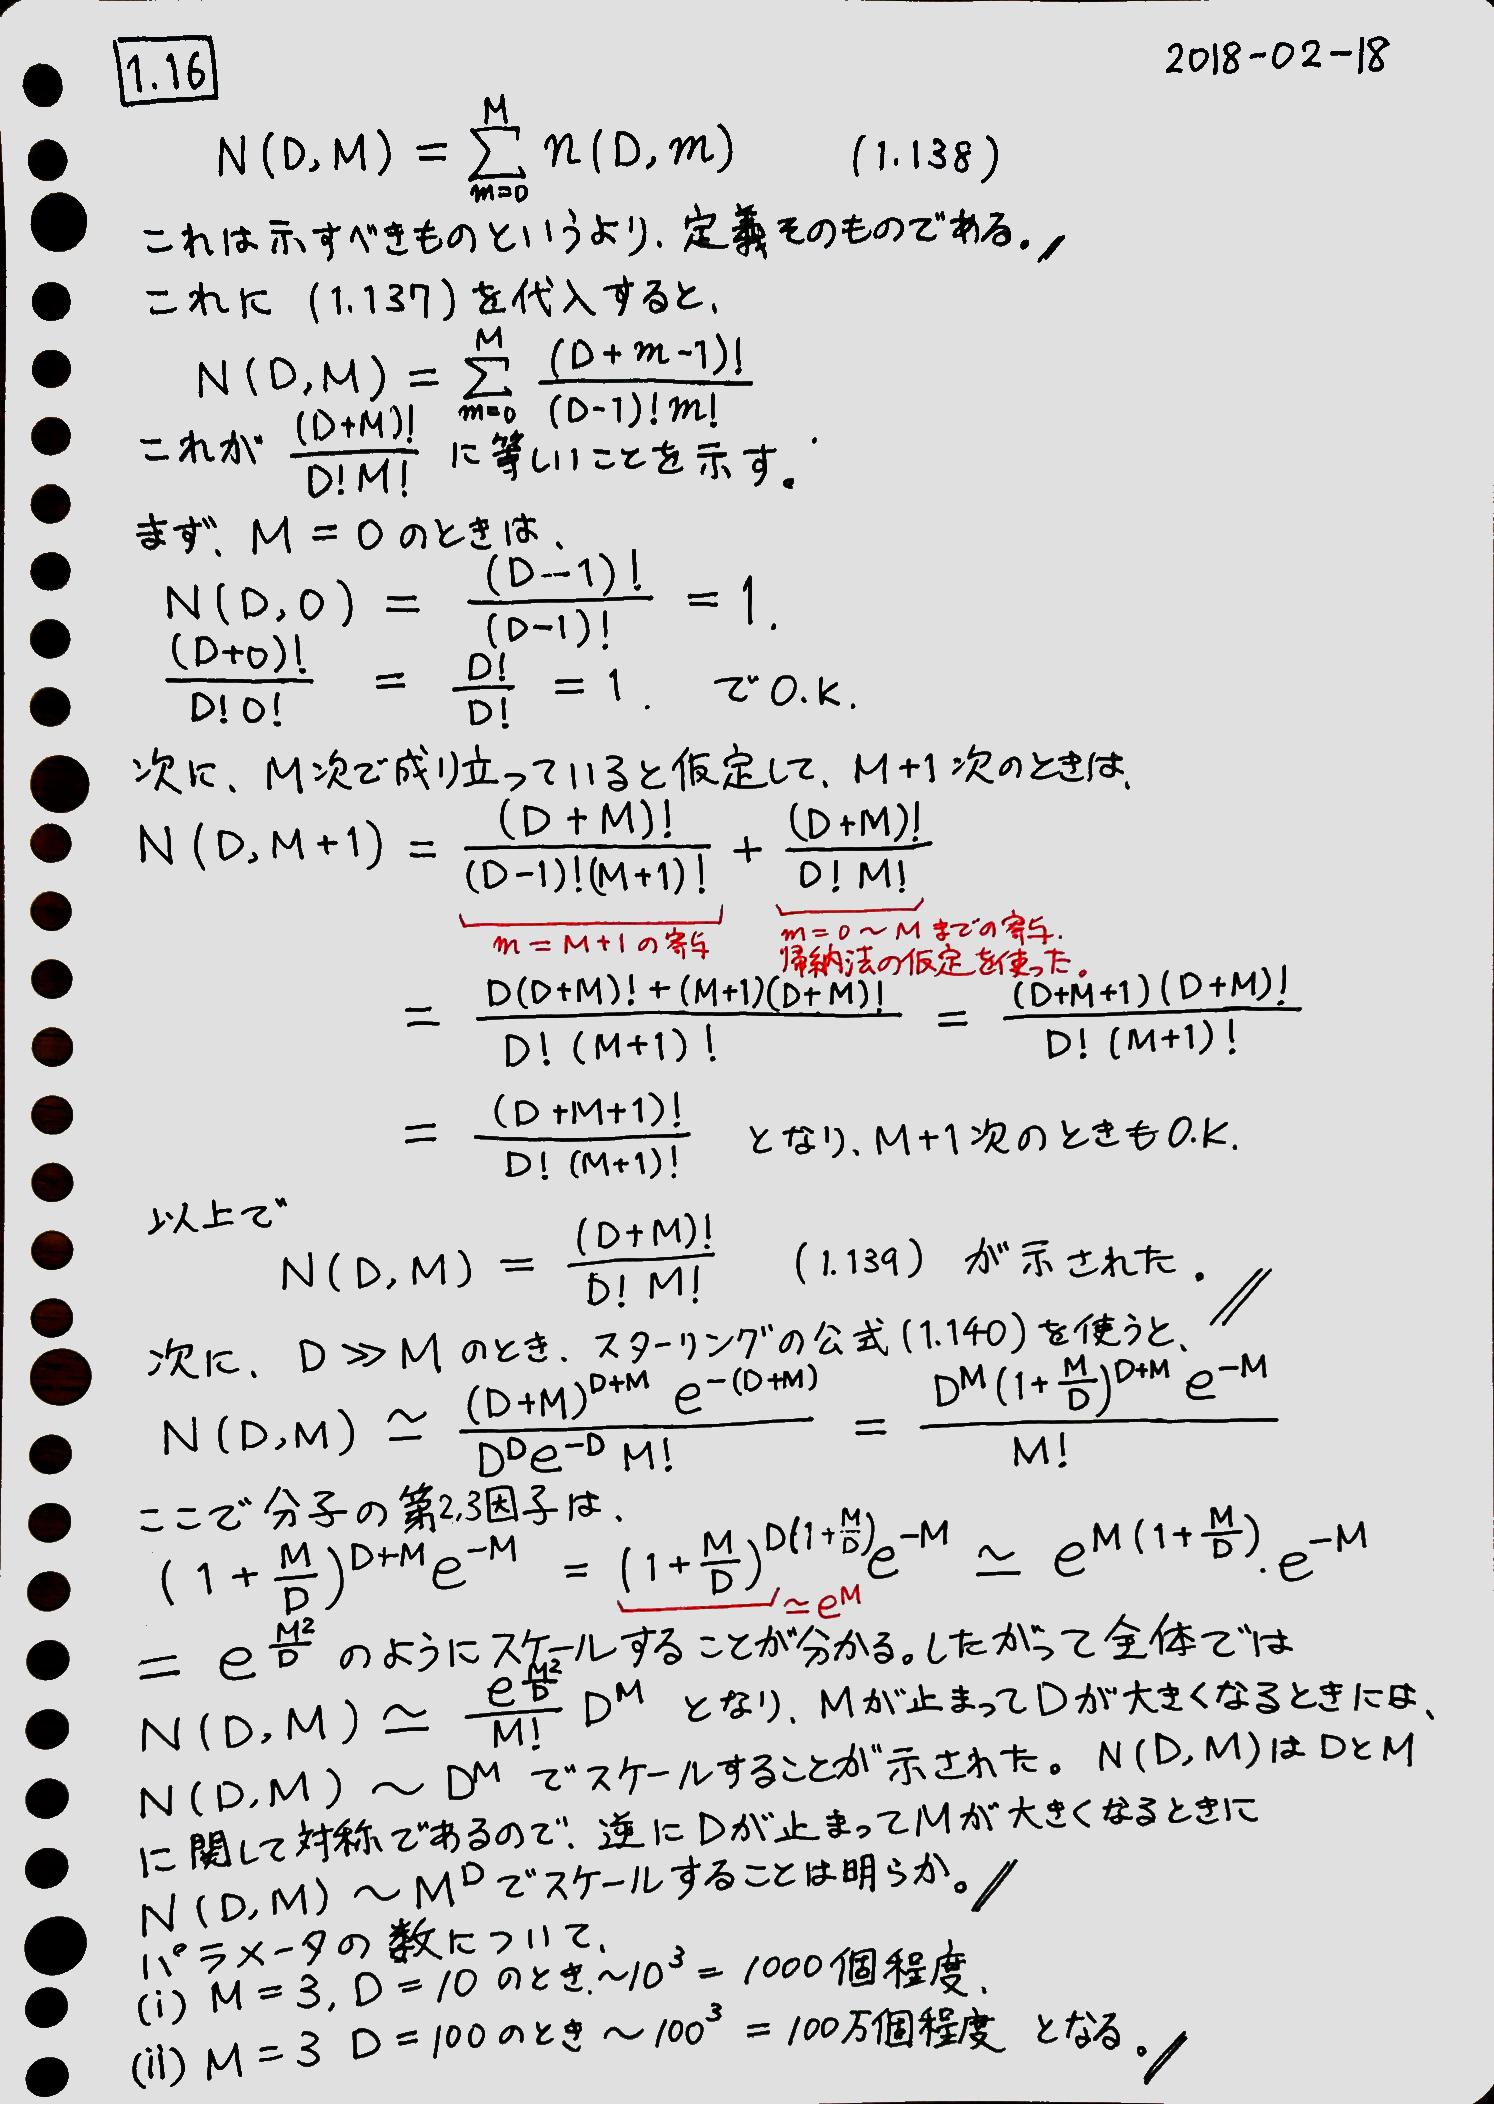 1.16 2018-02-18
N(D,M) = \sum_{m=0}^{M} n(D,m) (1.138)
これは示すべきものというより、定義そのものである。//
これに (1.137)を代入すると、
N(D,M) = \sum_{m=0}^{M} \frac{(D+m-1)!}{(D-1)!m!}
これが \frac{(D+M)!}{D!M!} に等しいことを示す。
まず、M = 0 のときは、
N(D,0) = \frac{(D-1)!}{(D-1)!} = 1.
\frac{(D+0)!}{D!0!} = \frac{D!}{D!} = 1. で O.K.
次に、M次で成り立っていると仮定して、M+1次のときは、
N(D,M+1) = \frac{(D+M)!}{(D-1)!(M+1)!} + \frac{(D+M)!}{D!M!}
m=M+1の寄与 m=0~Mまでの寄与.
帰納法の仮定を使った。
= \frac{D(D+M)!+(M+1)(D+M)!}{D!(M+1)!} = \frac{(D+M+1)(D+M)!}{D!(M+1)!}
= \frac{(D+M+1)!}{D!(M+1)!} となり、M+1次のときもO.K.
以上で
N(D,M) = \frac{(D+M)!}{D!M!} (1.139) が示された。//
次に、D≫Mのとき、スターリングの公式(1.140)を使うと、
N(D,M) ≃ \frac{(D+M)^{D+M} e^{-(D+M)}}{D^D e^{-D} M!} = \frac{D^M(1+\frac{M}{D})^{D+M} e^{-M}}{M!}
ここで分子の第2,3因子は、
(1+\frac{M}{D})^{D+M} e^{-M} = (1+\frac{M}{D})^{D(1+\frac{M}{D})} e^{-M} ≃ e^{M(1+\frac{M}{D})}・e^{-M}
≃e^M
= e^{\frac{M^2}{D}} のようにスケールすることが分かる。したがって全体では
N(D,M) ≃ \frac{e^{\frac{M^2}{D}}}{M!} D^M となり、Mが止まってDが大きくなるときには、
N(D,M) ~ D^M でスケールすることが示された。N(D,M)はDとM
に関して対称であるので、逆にDが止まってMが大きくなるときに
N(D,M) ~ M^D でスケールすることは明らか。//
パラメータの数について、
(i) M = 3, D = 10 のとき、~10^3 = 1000個程度、
(ii) M = 3 D = 100のとき ~100^3 = 100万個程度 となる。//